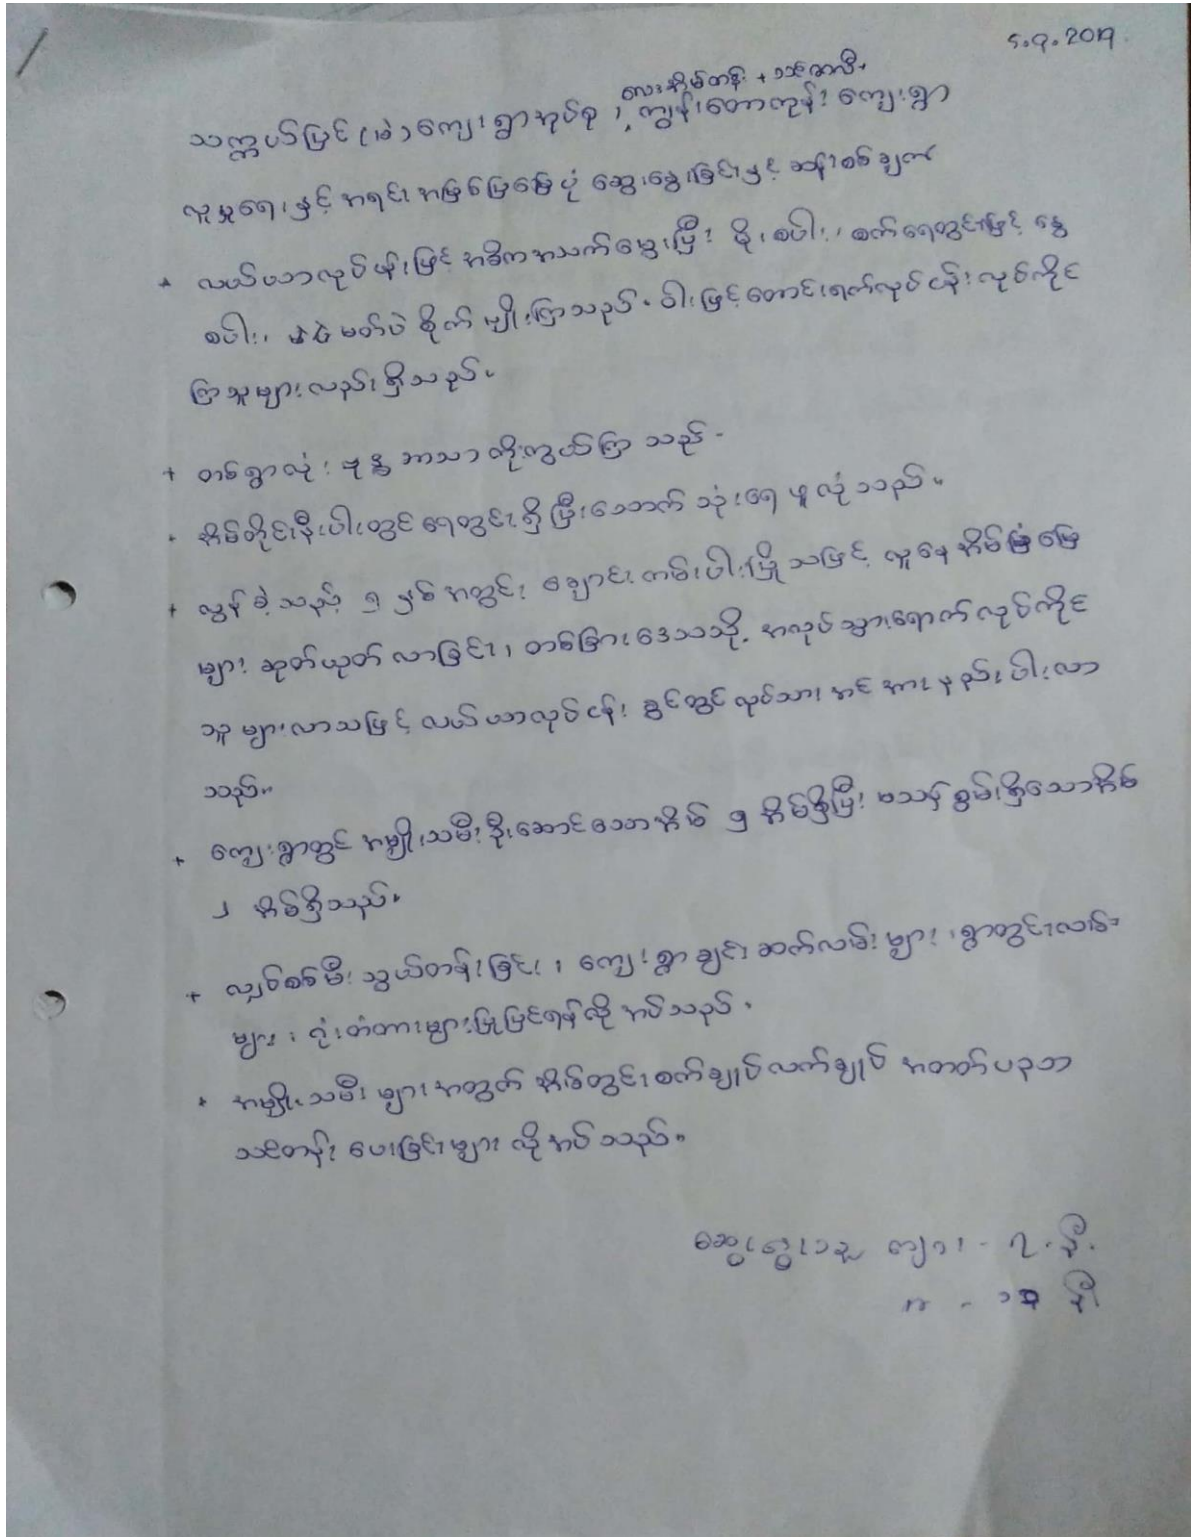 ၄.၇.2017
လေးအိမ်တန်း +
သက္ကယ်ပြင် ( ) ကျေးရွာအုပ်စု ၊ ကျွန်းတောကုန်း ကျေးရွာ
လူမှုရေးနှင့် အရင်းအမြစ်မြေပြပုံ ဆွေးနွေးခြင်းနှင့် ဆန်းစစ်ချက်
* လယ်ယာလုပ်ငန်းဖြင့် အဓိကအသက်မွေးပြီး မိုးစပါး၊ စက်ရေတွင်းဖြင့် နွေ
စပါး၊ မတ်ပဲ စိုက်မျိုးကြသည်။ ဝါးဖြင့်တောင်းရက်လုပ်ငန်း လုပ်ကိုင်
ကြသူများလည်းရှိသည်။
+ တစ်ရွာလုံး ဗုဒ္ဓဘာသာ ကိုးကွယ်ကြသည်-
* အိမ်တိုင်းနီးပါးတွင် ရေတွင်းရှိပြီးသောက်သုံးရေ ဖူလုံသည်။
+ လွန်ခဲ့သည့် ၅ နှစ်အတွင်း ချောင်းကမ်းပါးပြိုသဖြင့် လူနေအိမ်ခြံမြေ
များ ဆုတ်ယုတ်လာခြင်း၊ တစ်ခြားဒေသသို့ အလုပ်သွားရောက်လုပ်ကိုင်
သူများလာသဖြင့် လယ်ယာလုပ်ငန်းခွင်တွင် လုပ်သားအင်အားနည်းပါးလာ
သည်။
+ ကျေးရွာတွင် အမျိုးသမီးဦးဆောင်သောအိမ် ၅ အိမ်ရှိပြီး မသန်စွမ်းရှိသောအိမ်
၂ အိမ်ရှိသည်။
+ လျှပ်စစ်မီးသွယ်တန်းခြင်း၊ ကျေးရွာချင်းဆက်လမ်းများ၊ ရွာတွင်းလမ်း
များ၊ ဂုံးတံတားများပြုပြင်ရန်လိုအပ်သည်။
* အမျိုးသမီးများအတွက် အိမ်တွင်းစက်ချုပ်လက်ချုပ် အတတ်ပညာ
သင်တန်းပေးခြင်းများ လိုအပ်သည်။
ဆွေးနွေးသူ ကျား - ၇ ဦး
မ - ဦး